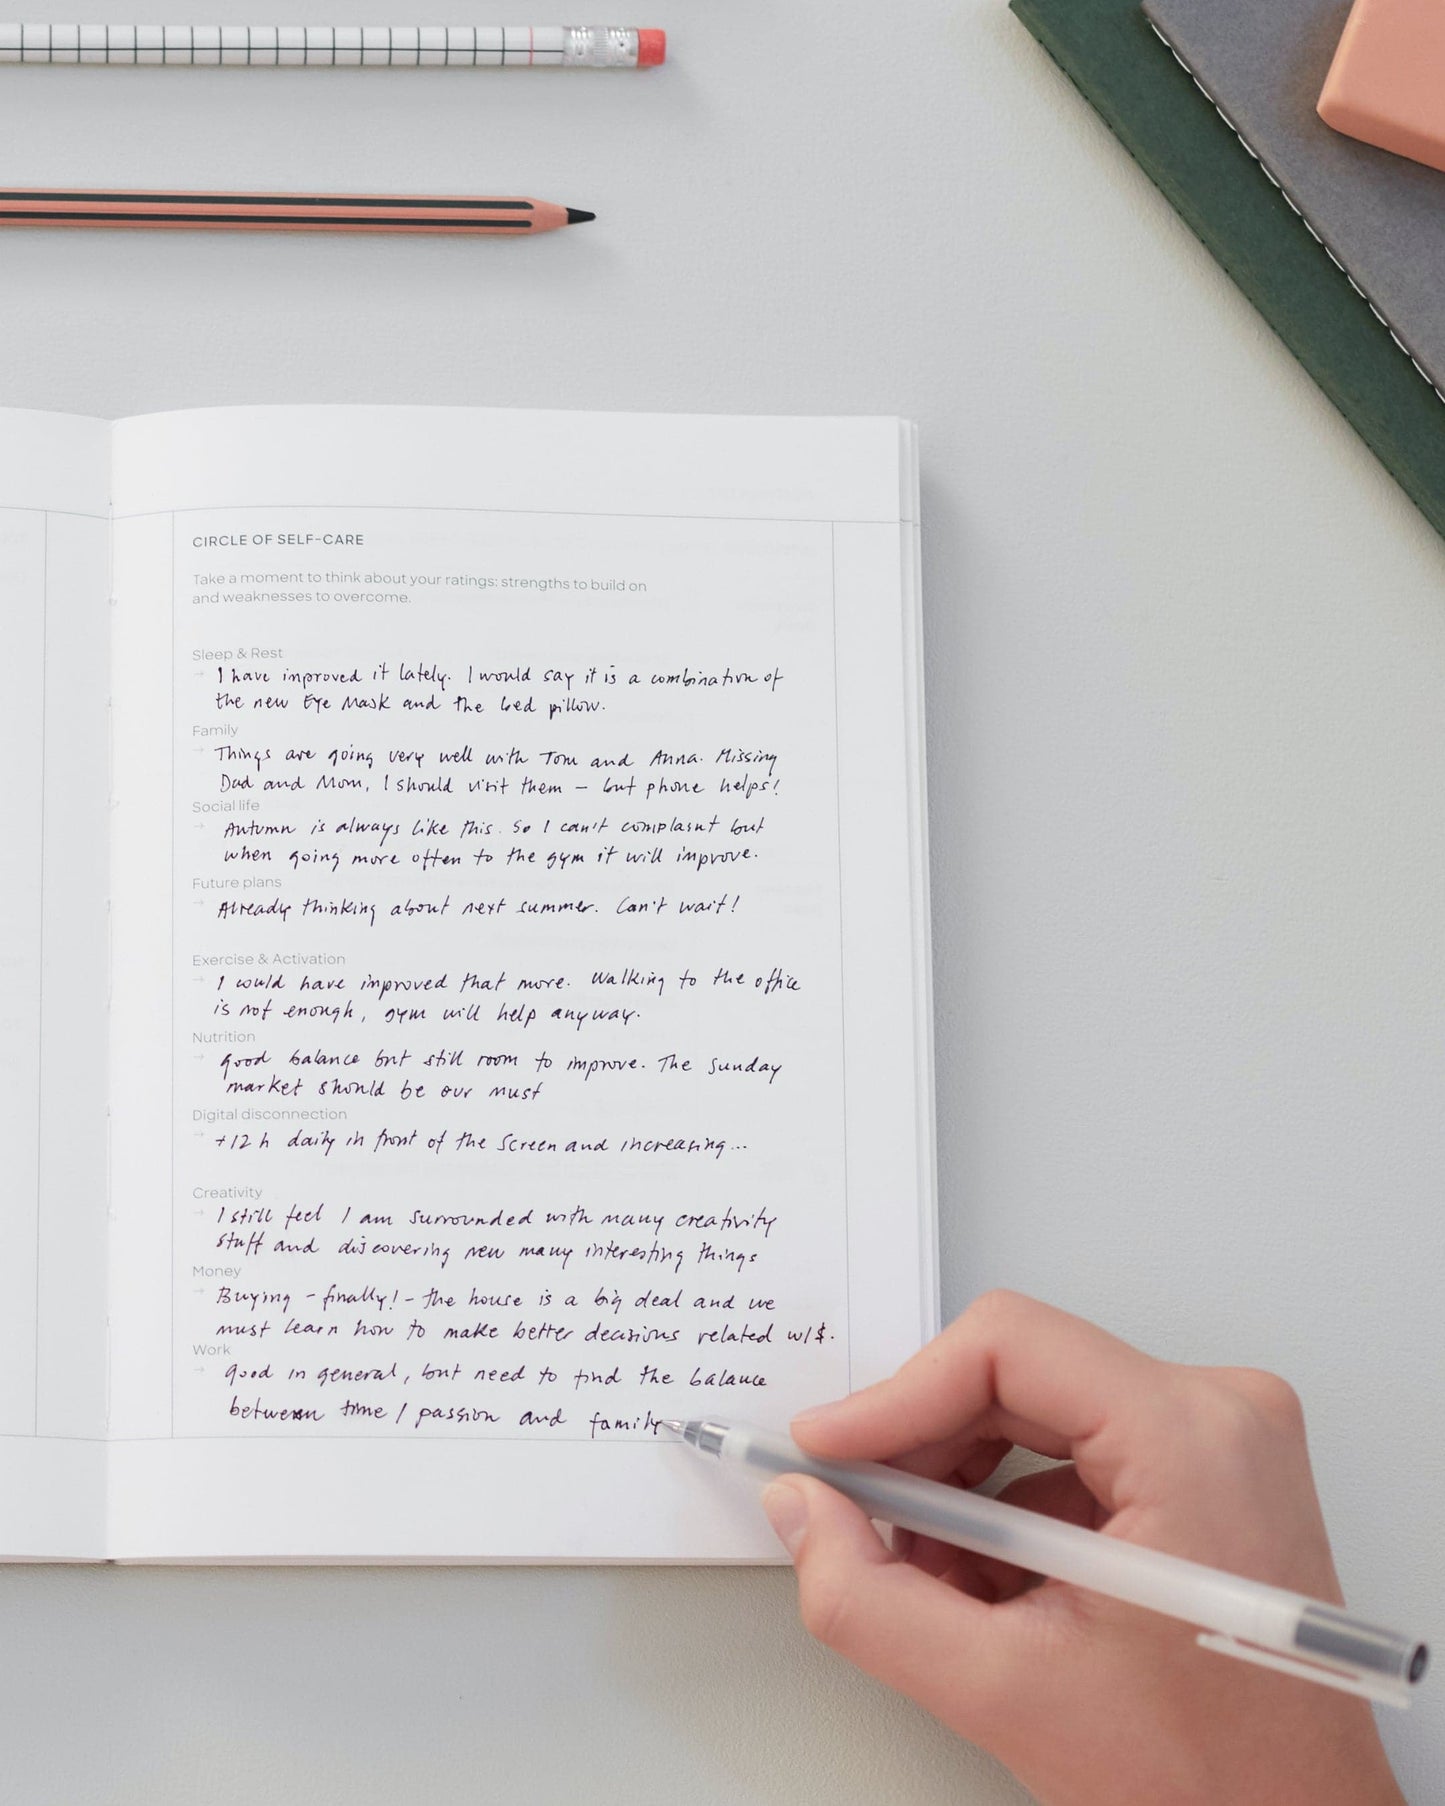 CIRCLE OF SELF-CARE
Take a moment to think about your ratings: strengths to build on
and weaknesses to overcome.
Sleep & Rest
→ I have improved it lately. I would say it is a combination of
the new Eye Mask and the bed pillow.
Family
→ Things are going very well with Tom and Anna. Missing
Dad and Mom, I should visit them – but phone helps!
Social life
→ Autumn is always like this. So I can't complaint but
when going more often to the gym it will improve.
Future plans
→ Already thinking about next summer. Can't wait!
Exercise & Activation
→ I could have improved that more. Walking to the office
is not enough, gym will help anyway.
Nutrition
→ good balance but still room to improve. The Sunday
market should be our must
Digital disconnection
→ +12 h daily in front of the screen and increasing...
Creativity
→ I still feel I am surrounded with many creativity
stuff and discovering new many interesting things
Money
→ Buying – finally! – the house is a big deal and we
must learn how to make better decisions related w/$.
Work
→ good in general, but need to find the balance
between time / passion and family